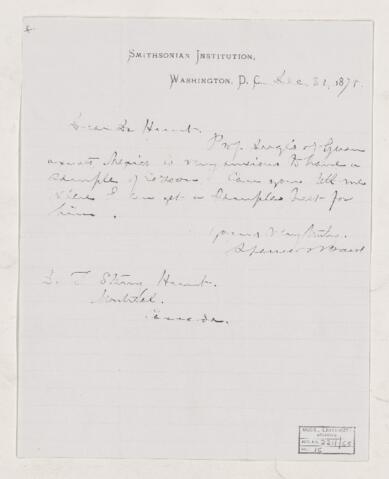 Smithsonian Institution,
Washington, D. C. Dec. 31, 1875.
Dear Dr Hunt.
Prof. of Guan
axuato Mexico is very anxious to have a
sample of Eozoon. Can you tell me
where I can get a sample for
him.
Yours very truly
Spencer F Baird
Dr. T Sterry Hunt.
Montreal.
Canada.